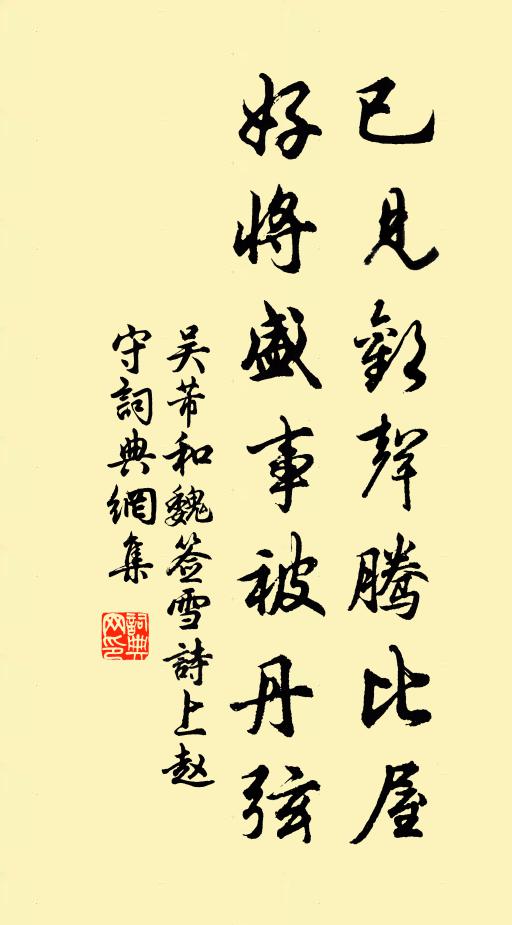 已見歡聲騰比屋
好將盛事被丹弦
吴芾和魏签雪詩上赵
守詞典網集
詞典
网印